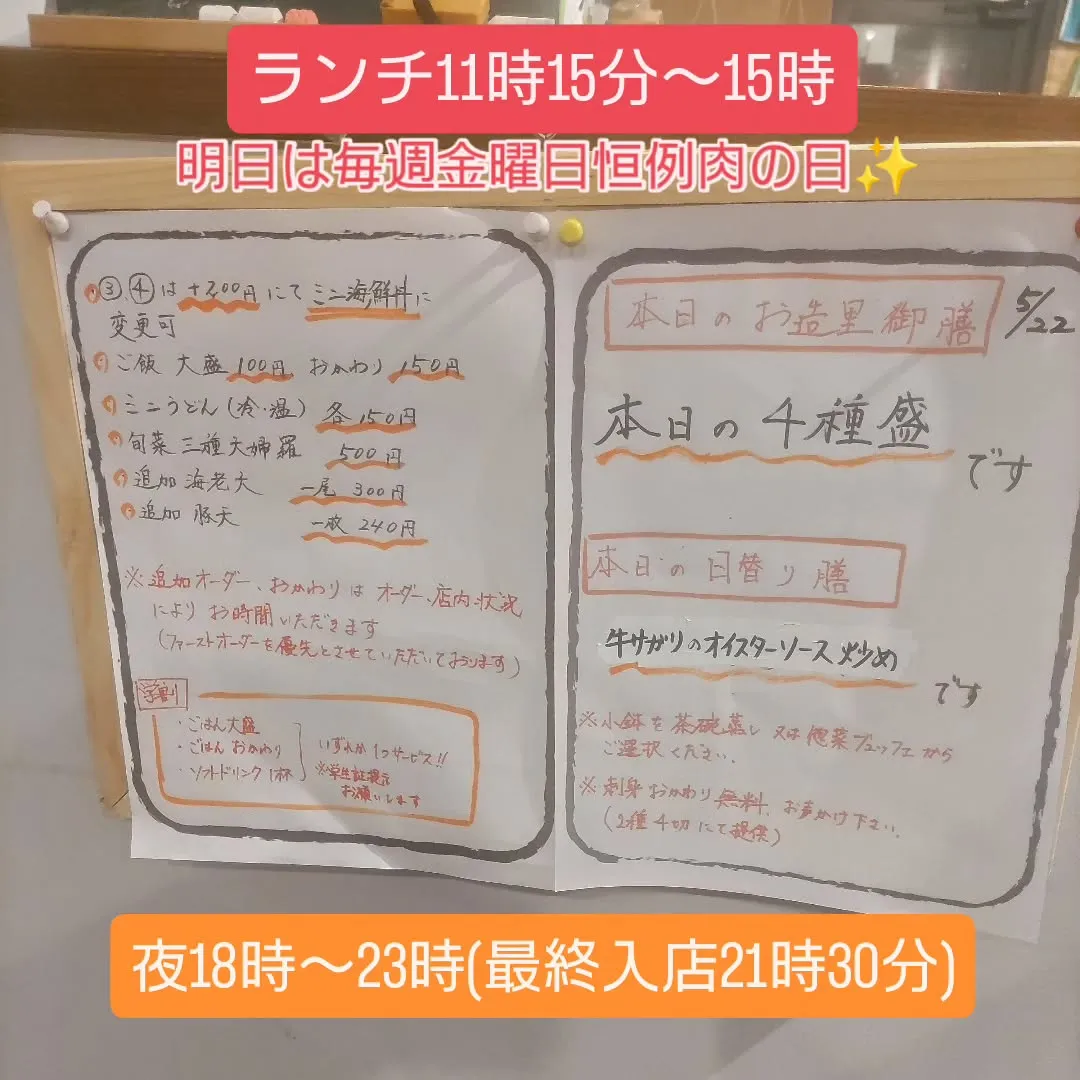 ランチ11時15分〜15時
明日は毎週金曜日恒例肉の日✨
③、④は+200円にてミニ海鮮丼に
変更可
ご飯 大盛100円 おかわり150円
ミニうどん(冷・温) 各150円
旬菜三種天婦羅 500円
追加海老天 一尾 300円
追加豚天 一枚 240円
※追加オーダー、おかわりはオーダー、店内状況
によりお時間いただきます
(ファーストオーダーを優先とさせていただいております)
学割
・ごはん大盛
・ごはんおかわり
・ソフトドリンク1杯
いずれか1つサービス!!
※学生証提示
お願いします
本日のお造里御膳
5/22
本日の4種盛
です
本日の日替り膳
牛サガリのオイスターソース炒め
です
※小鉢を茶碗蒸し又は惣菜ブュッフェから
ご選択ください。
※刺身おかわり無料、お声かけ下さい。
(2種4切にて提供)
夜18時〜23時(最終入店21時30分)